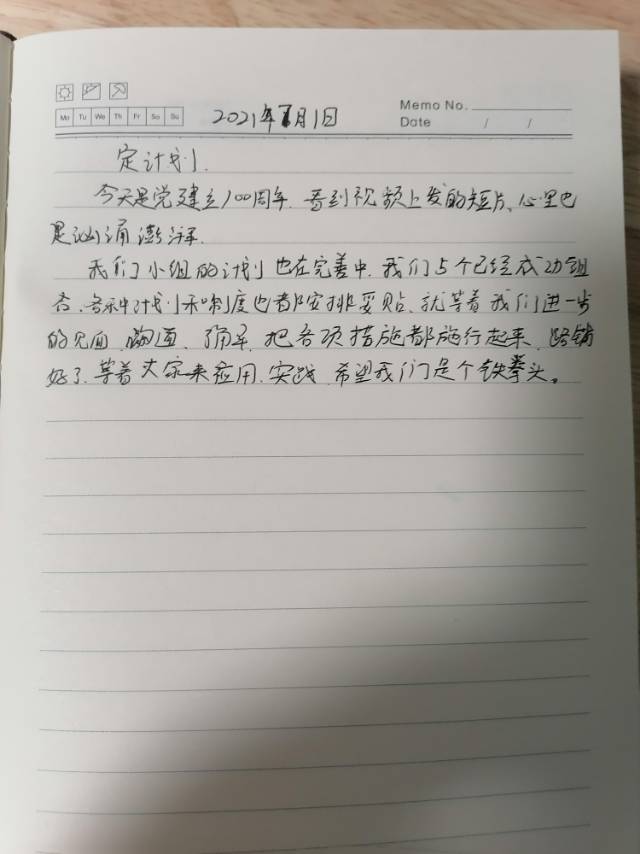 Mo Tu We Th Fr Sa Su
2021年7月1日
Memo No.
Date / /
定计划.
今天是党建立100周年.看到视频上发的短片、心里也
是汹涌澎湃.
我们小组的计划也在完善中.我们5个已经成功组
合、各种计划和制度也都安排妥贴.就等着我们进一步
的见面、沟通、确定.把各项措施都施行起来.路铺
好了.等着大家来应用.实践.希望我们是个铁拳头。